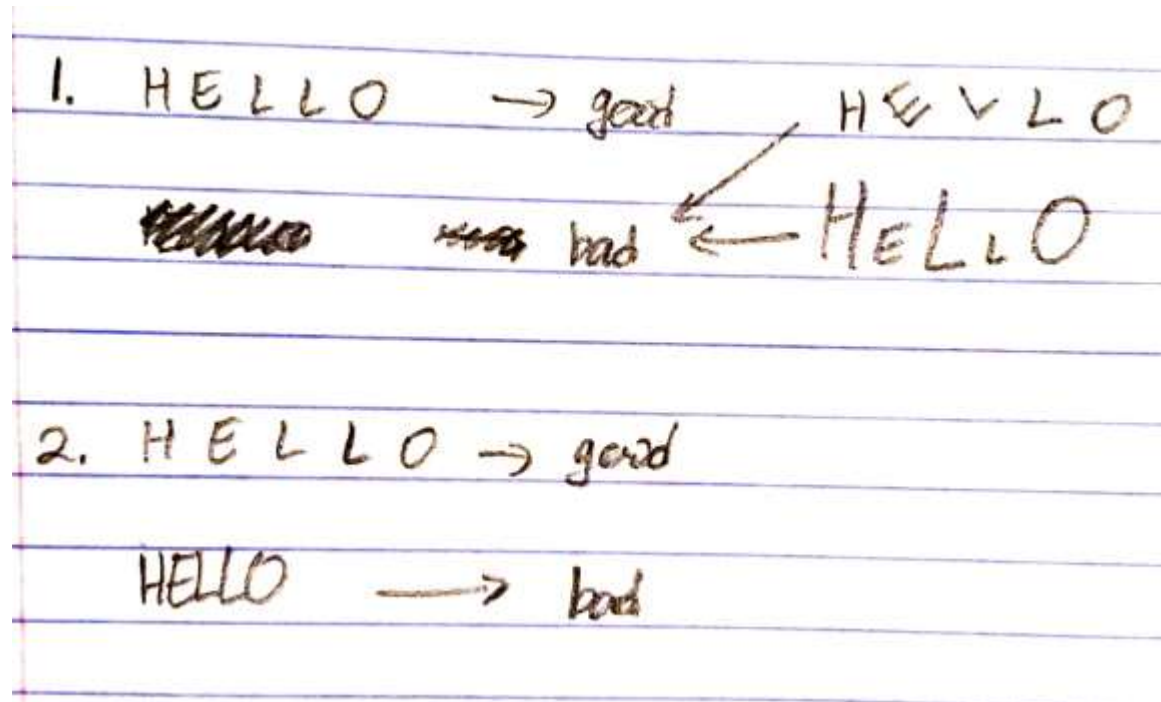 1. HELLO → good HELLO
bad ← HELLO
2. HELLO → good
HELLO → bad